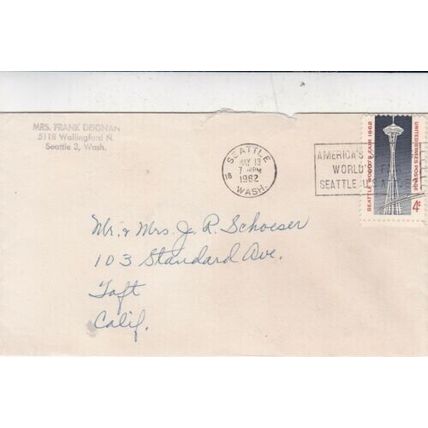 MRS. FRANK DEIGNAN
5118 Wallingford N.
Seattle 3, Wash.
SEATTLE
WASH.
18
MAY 13
7 PM
1962
AMERICA'S
WORLD'S
SEATTLE U.S.A.
SEATTLE WORLD'S FAIR 1962
UNITED STATES POSTAGE
4¢
Mr. & Mrs. J. R. Schoeser
103 Standard Ave.
Taft
Calif.